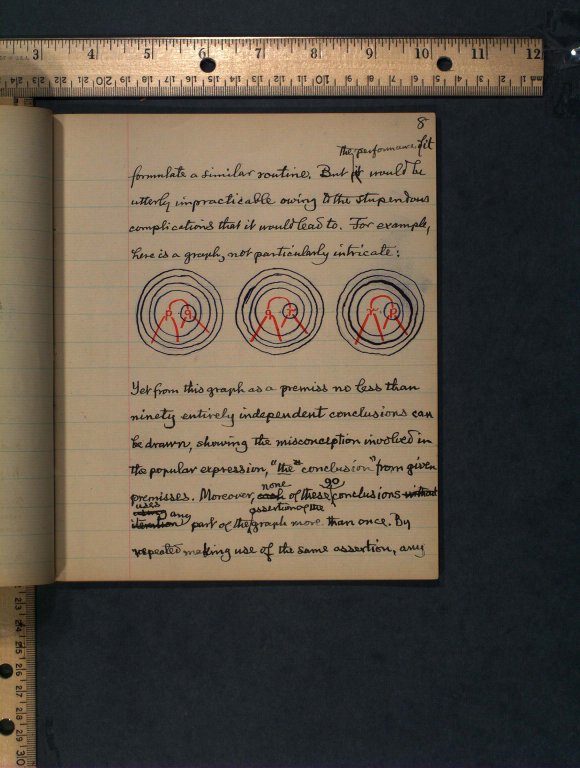 8
the performance of it
formulate a similar routine. But it would be
utterly impracticable owing to the stupendous
complications that it would lead to. For example,
here is a graph, not particularly intricate:
p q q r r p
Yet from this graph as a premiss no less than
ninety entirely independent conclusions can
be drawn, showing the misconception involved in
the popular expression, "the "conclusion" from given
none 90
premisses. Moreover, each of these conclusions without
uses any assertion of the
iteration part of the graph more than once. By
repeated making use of the same assertion, any
3 4 5 6 7 8 9 10 11 12